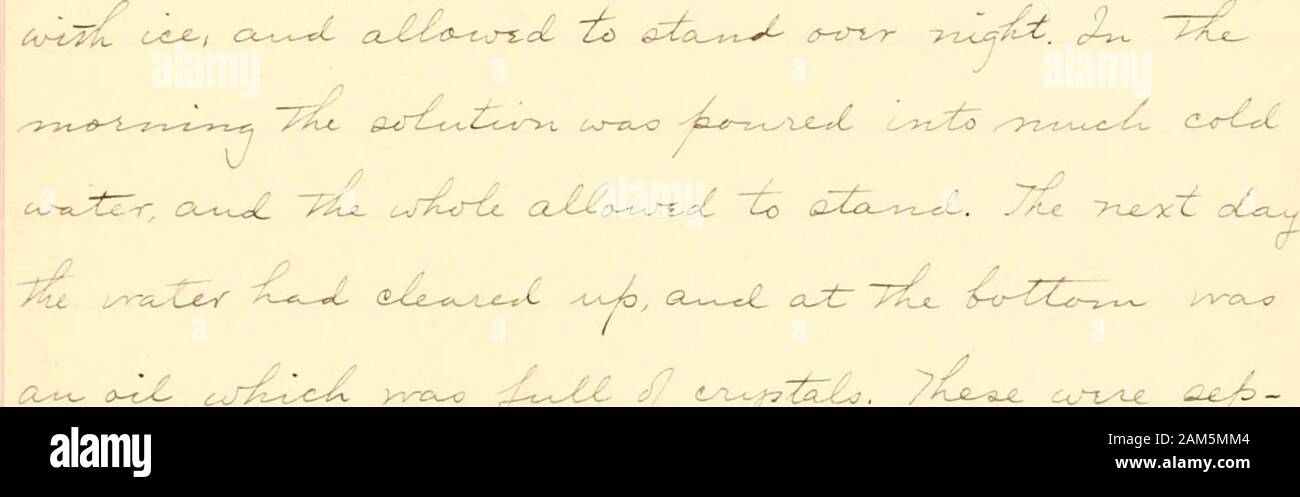 with ice, and allowed to stand over night. In the
morning the solution was poured into much cold
water, and the whole allowed to stand. The next day
the water had cleared up, and at the bottom was
an oil which was full of crystals. These were sep-
alamy
Image ID: 2AM5MM4
www.alamy.com